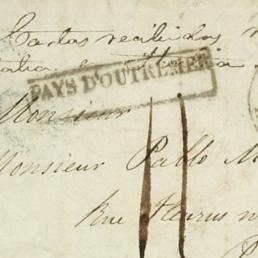 Cartas recibidas
PAYS D'OUTREMER
Monsieur
Monsieur Pablo M
Rue Fleurus n